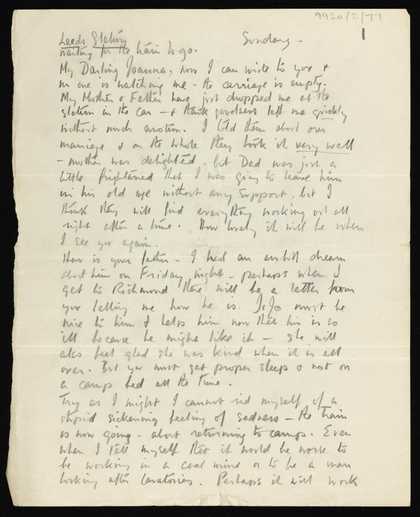 9920/2/77
1
Leeds Station Sunday -
waiting for the train to go.
My Darling Joanna, now I can write to you &
no one is watching me - the carriage is empty.
My Mother & Father have just dropped me at the
station in the car - & thank goodness left me quickly
without much emotion. I told them about our
marriage & on the whole they took it very well
- mother was delighted, but Dad was just a
little frightened that I was going to leave him
in his old age without any support, but I
think they will find everything working out all
right after a time. How lovely it will be when
I see you again.
How is your father - I had an awful dream
about him on Friday night - perhaps when I
get to Richmond there will be a letter from
you telling me how he is. JoJo must be
nice to him & help him now that he is so
ill because he might like it - she will
also feel glad she was kind when it is all
over. But you must get proper sleep & not on
a camp bed all the time.
Try as I might I cannot rid myself of a
stupid sickening feeling of sadness - the train
is now going - about returning to camp. Even
when I tell myself that it would be worse to
be working in a coal mine or to be a man
looking after lavatories. Perhaps it will work